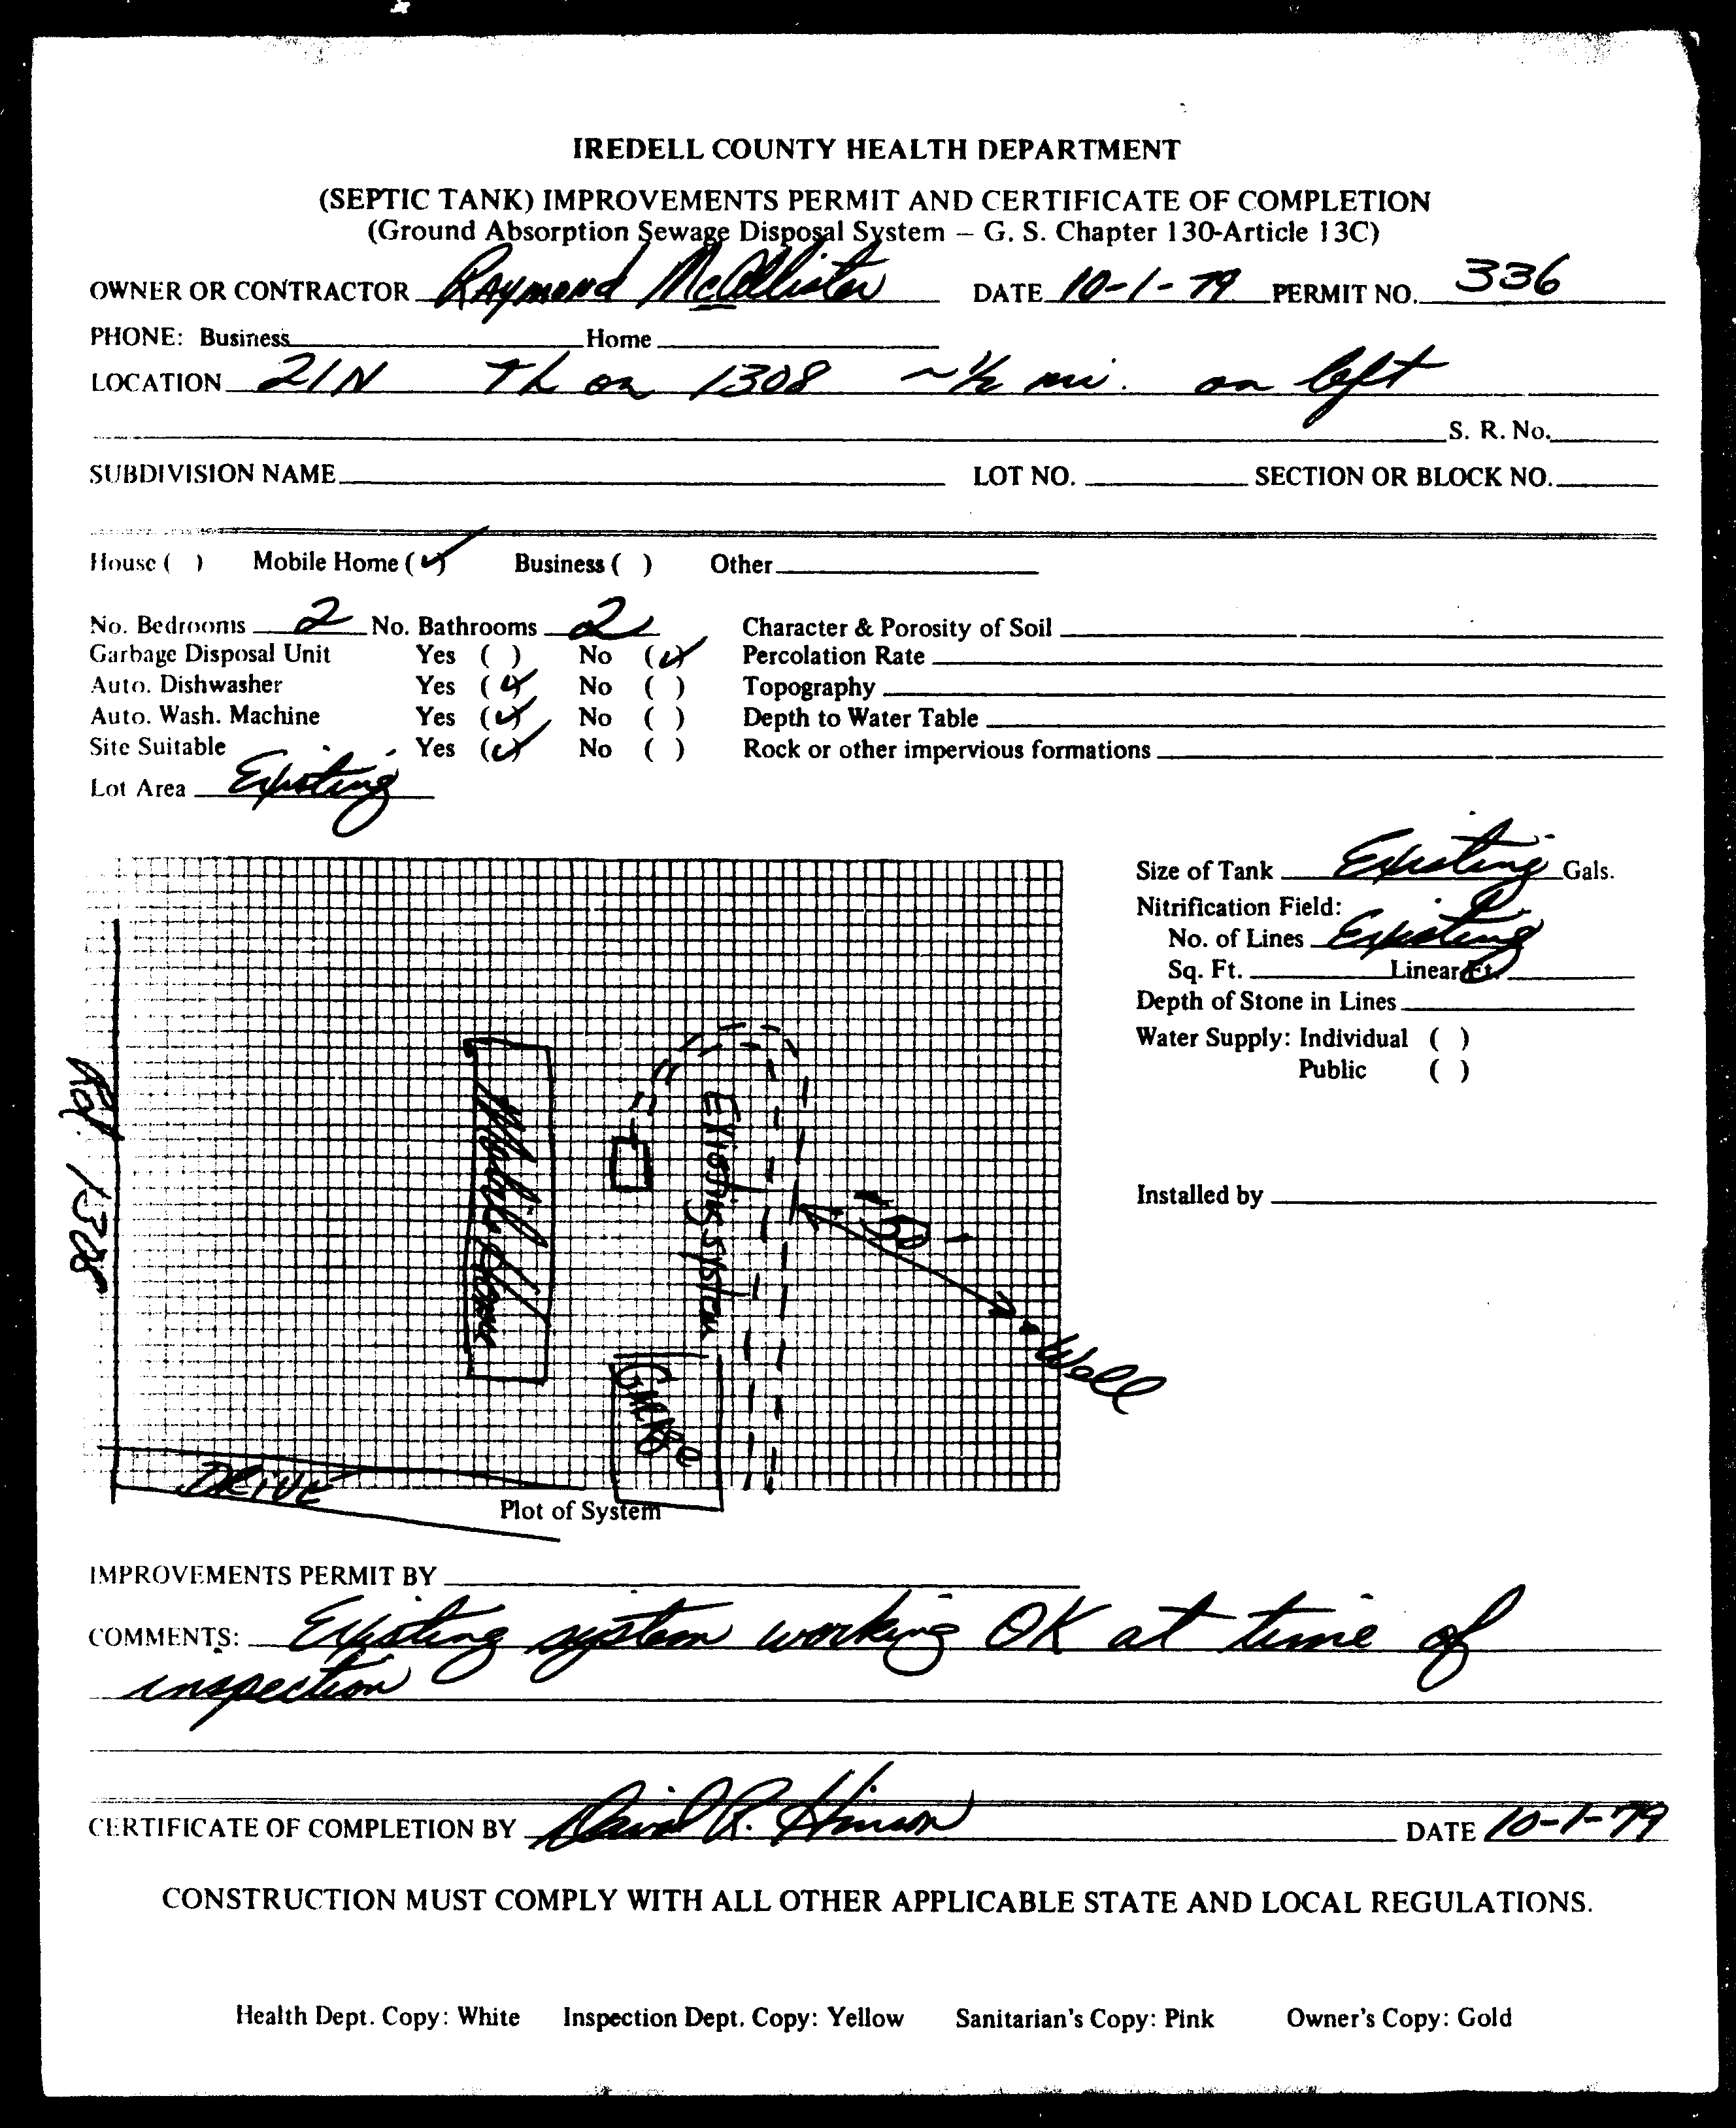 IREDELL COUNTY HEALTH DEPARTMENT
(SEPTIC TANK) IMPROVEMENTS PERMIT AND CERTIFICATE OF COMPLETION
(Ground Absorption Sewage Disposal System – G. S. Chapter 130-Article 13C)
OWNER OR CONTRACTOR Raymond McAllister DATE 10-1-79 PERMIT NO. 336
PHONE: Business Home
LOCATION 21N TL on 1308 ~ 1/2 mi. on left
S. R. No.
SUBDIVISION NAME LOT NO. SECTION OR BLOCK NO.
House ( ) Mobile Home (✓) Business ( ) Other
No. Bedrooms 2 No. Bathrooms 2 Character & Porosity of Soil
Garbage Disposal Unit Yes ( ) No (✓) Percolation Rate
Auto. Dishwasher Yes (✓) No ( ) Topography
Auto. Wash. Machine Yes (✓) No ( ) Depth to Water Table
Site Suitable Yes (✓) No ( ) Rock or other impervious formations
Lot Area Existing
Size of Tank Existing Gals.
Nitrification Field:
No. of Lines Existing
Sq. Ft. Linear Ft.
Depth of Stone in Lines
Water Supply: Individual ( )
Public ( )
Installed by
Rd. 1308
Mobile Home
Existing System
Garage
Well
Drive
Plot of System
IMPROVEMENTS PERMIT BY
COMMENTS: Existing system working OK at time of
inspection
CERTIFICATE OF COMPLETION BY David R. Hinson DATE 10-1-79
CONSTRUCTION MUST COMPLY WITH ALL OTHER APPLICABLE STATE AND LOCAL REGULATIONS.
Health Dept. Copy: White Inspection Dept. Copy: Yellow Sanitarian's Copy: Pink Owner's Copy: Gold